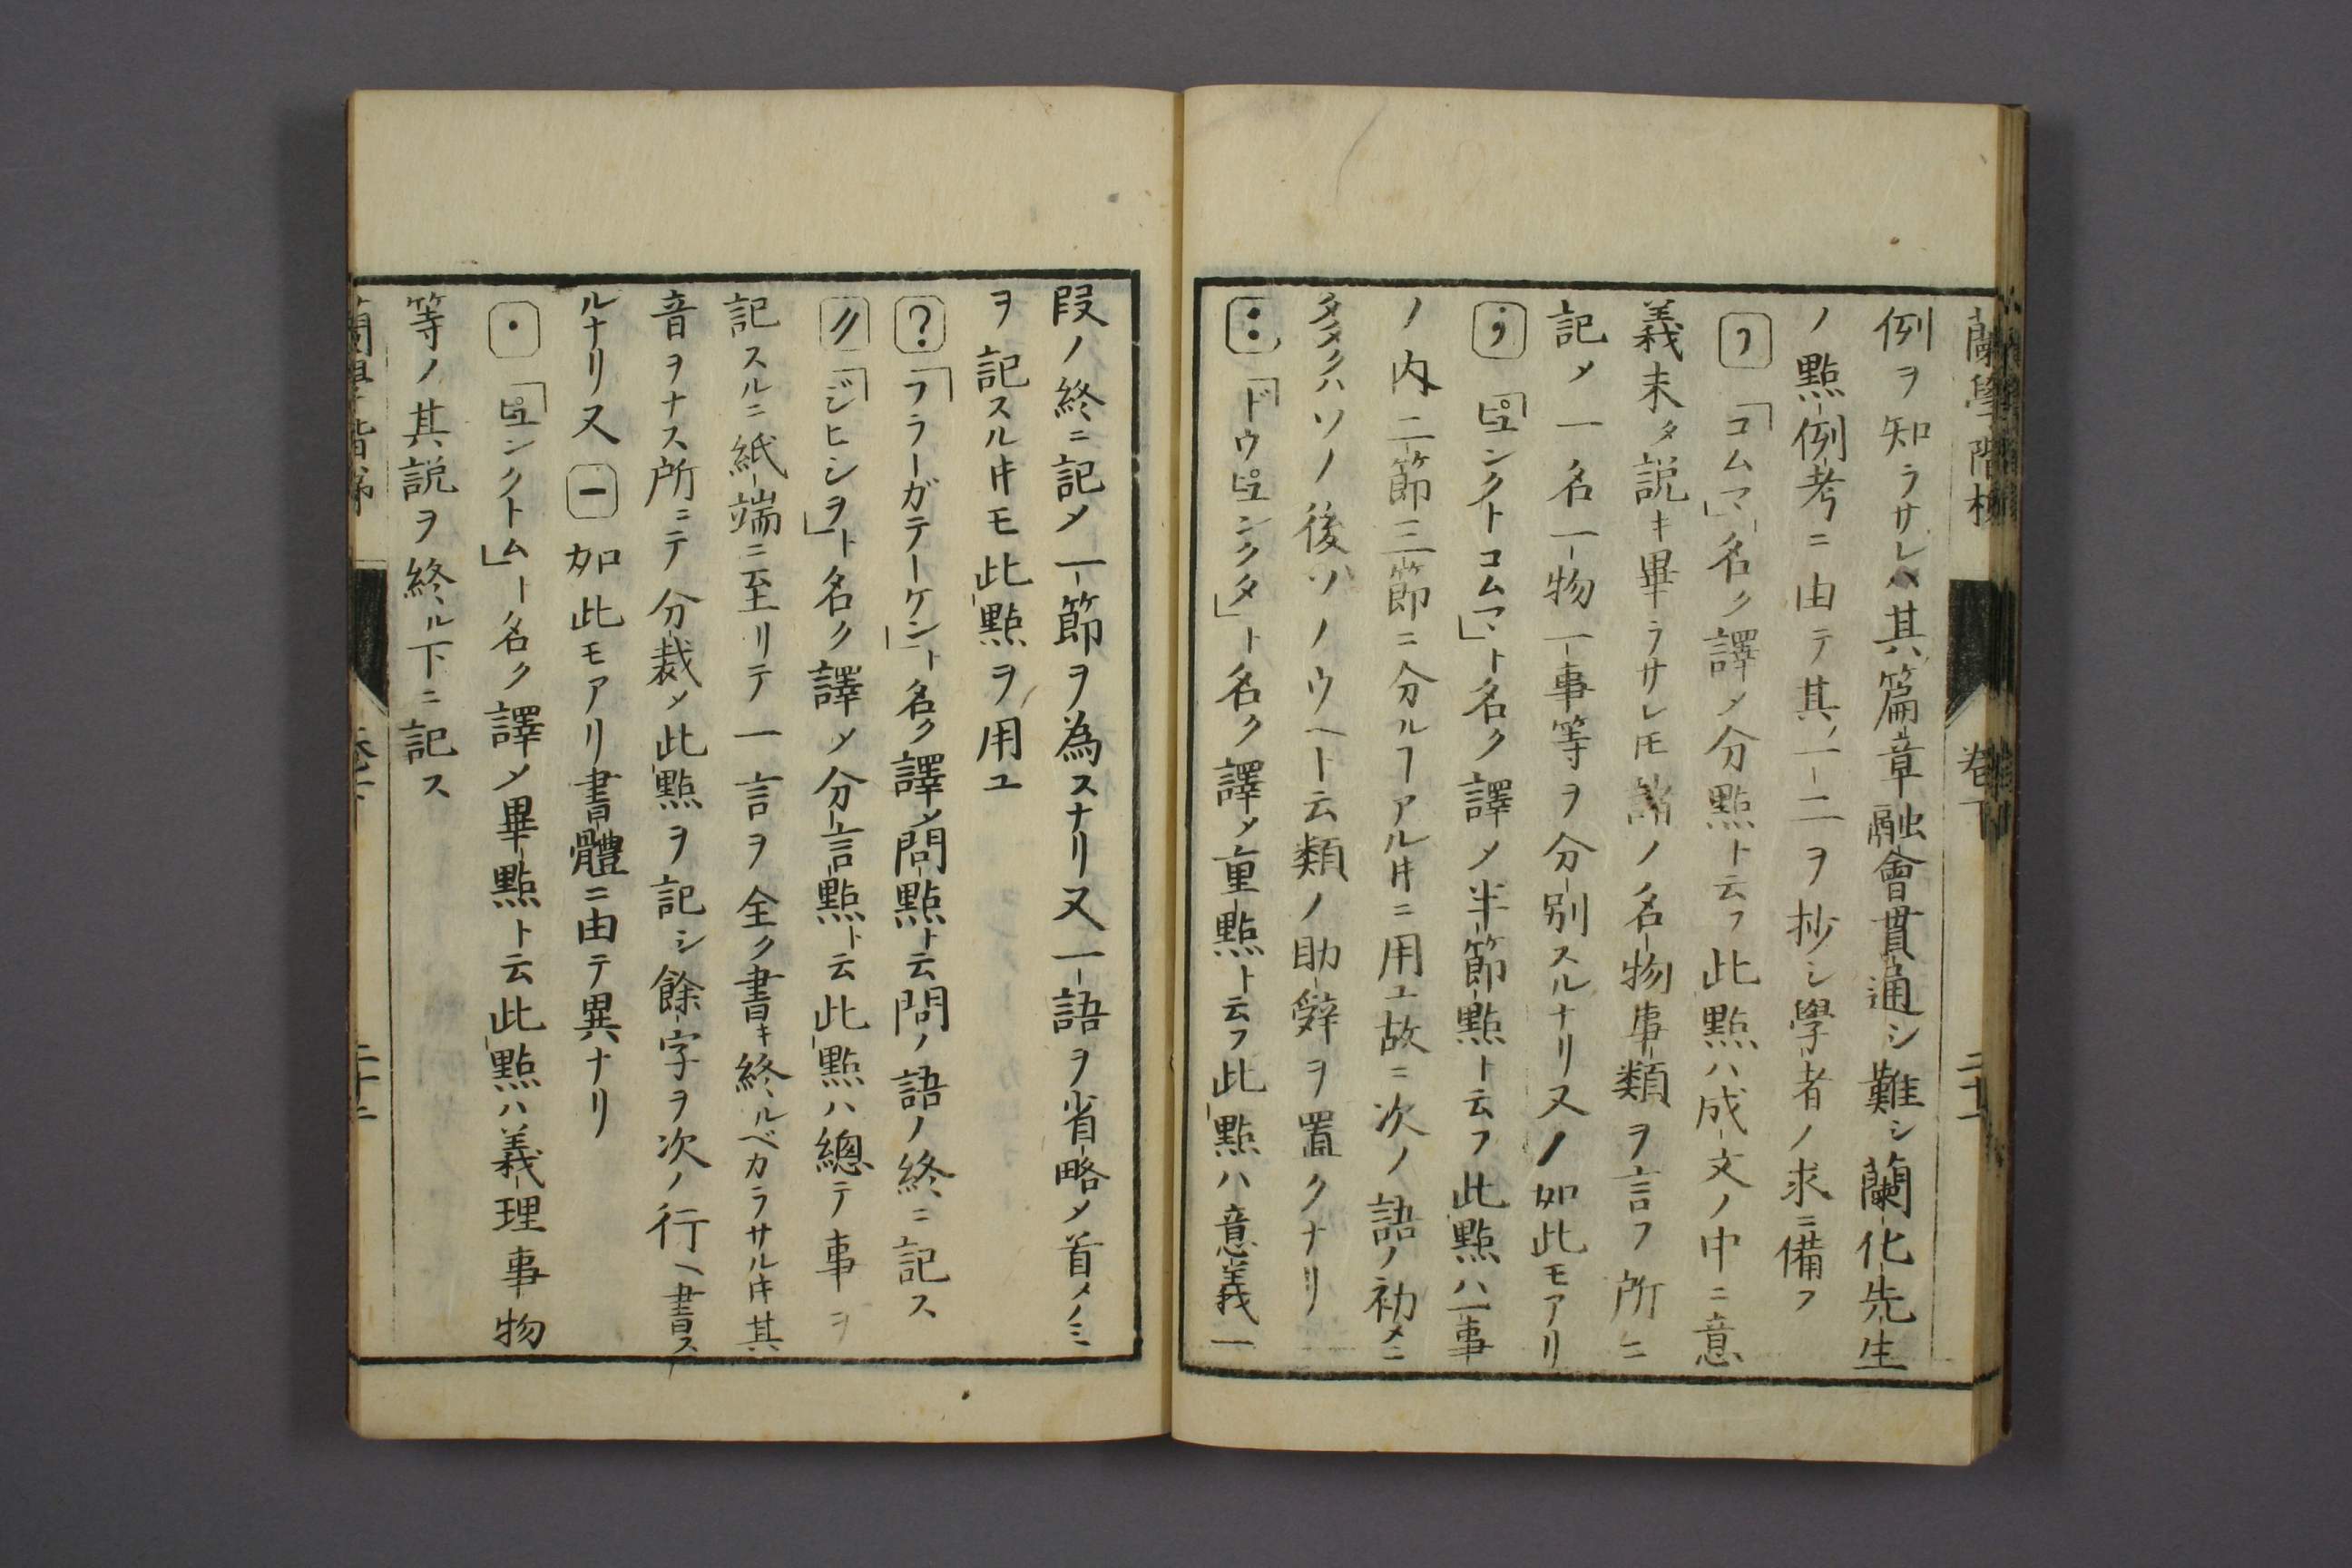 蘭學階梯 卷下 二十一
例ヲ知ラサレハ其篇章融會貫通シ難シ蘭化先生
ノ點例考ニ由テ其一二ヲ抄シ學者ノ求ニ備フ
, 「コムマ」名ク譯〆分點ト云フ此點ハ成文ノ中ニ意
義未タ説キ畢ラサレ𪜈諸ノ名物事類ヲ言フ所ニ
記〆一名一物一事等ヲ分別スルナリ又/如此モアリ
; 「ピュンクトコムマ」ト名ク譯〆半節點ト云フ此點ハ一事
ノ内二節三節ニ分ルヿアル𪜈ニ用ユ故ニ次ノ語ノ初メニ
多クハソノ後ソノウヘト云類ノ助辭ヲ置クナリ
: 「ドウピュンクタ」ト名ク譯〆重點ト云フ此點ハ意義一
段ノ終ニ記〆一節ヲ為スナリ又一語ヲ省略〆首メノミ
ヲ記スル𪜈モ此點ヲ用ユ
? 「フラーガテーケン」ト名ク譯〆問點ト云問ノ語ノ終ニ記ス
〃 「ジヒシヲ」ト名ク譯〆分言點ト云此點ハ總テ事ヲ
記スルニ紙端ニ至リテ一言ヲ全ク書キ終ルベカラサル𪜈其
音ヲナス所ニテ分裁〆此點ヲ記シ餘字ヲ次ノ行ヘ書ス
ルナリ又 - 如此モアリ書體ニ由テ異ナリ
. 「ピュンクトム」ト名ク譯〆畢點ト云此點ハ義理事物
等ノ其説ヲ終ル下ニ記ス
蘭學階梯 卷下 二十二